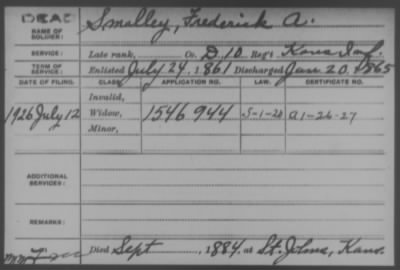 DEAD Smalley, Frederick A.
NAME OF
SOLDIER:
SERVICE: Late rank, Co. D, 10 Reg't Kans Inf.
TERM OF
SERVICE: Enlisted July 24, 1861 Discharged 20, 1865
DATE OF FILING. CLASS. APPLICATION NO. LAW. CERTIFICATE NO.
Invalid,
1926 July 12 Widow, 1546 944 5-1-20 A 1-26-27
Minor,
ADDITIONAL
SERVICES:
REMARKS:
Died Sept, 1884, at St. Johns, Kans.